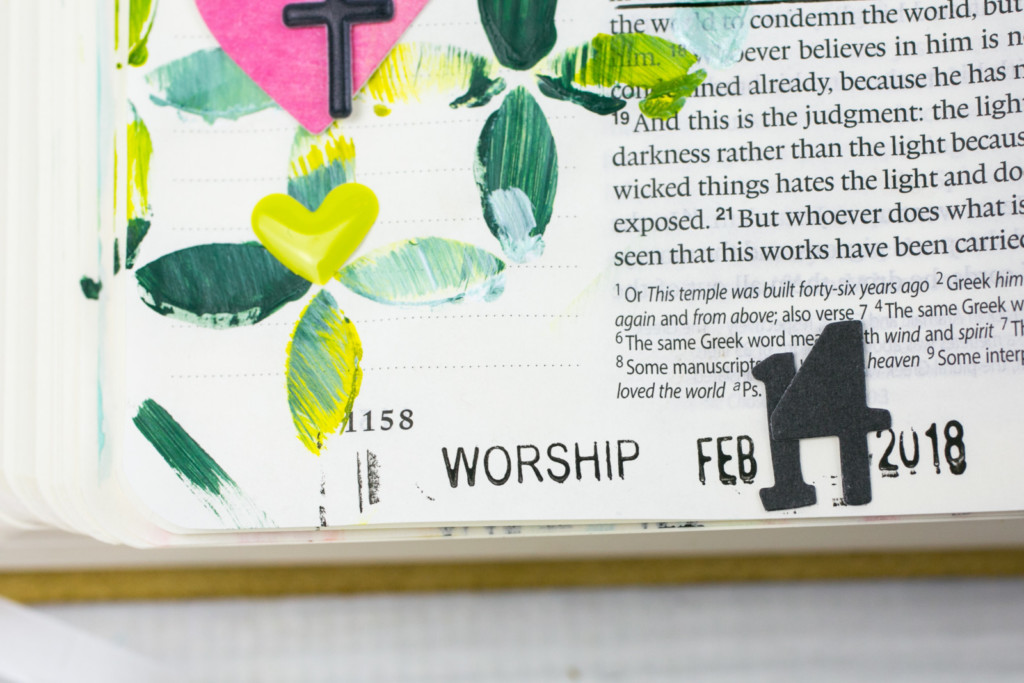 the world to condemn the world, but
him. 18 ever believes in him is
condemned already, because he has
19 And this is the judgment: the light
darkness rather than the light because
wicked things hates the light and do
exposed. 21 But whoever does what is
seen that his works have been carried
1 Or This temple was built forty-six years ago 2 Greek him
again and from above; also verse 7 4 The same Greek
6 The same Greek word means both wind and spirit 7
8 Some manuscripts heaven 9 Some interp
loved the world a Ps.
1158
WORSHIP FEB 14 2018